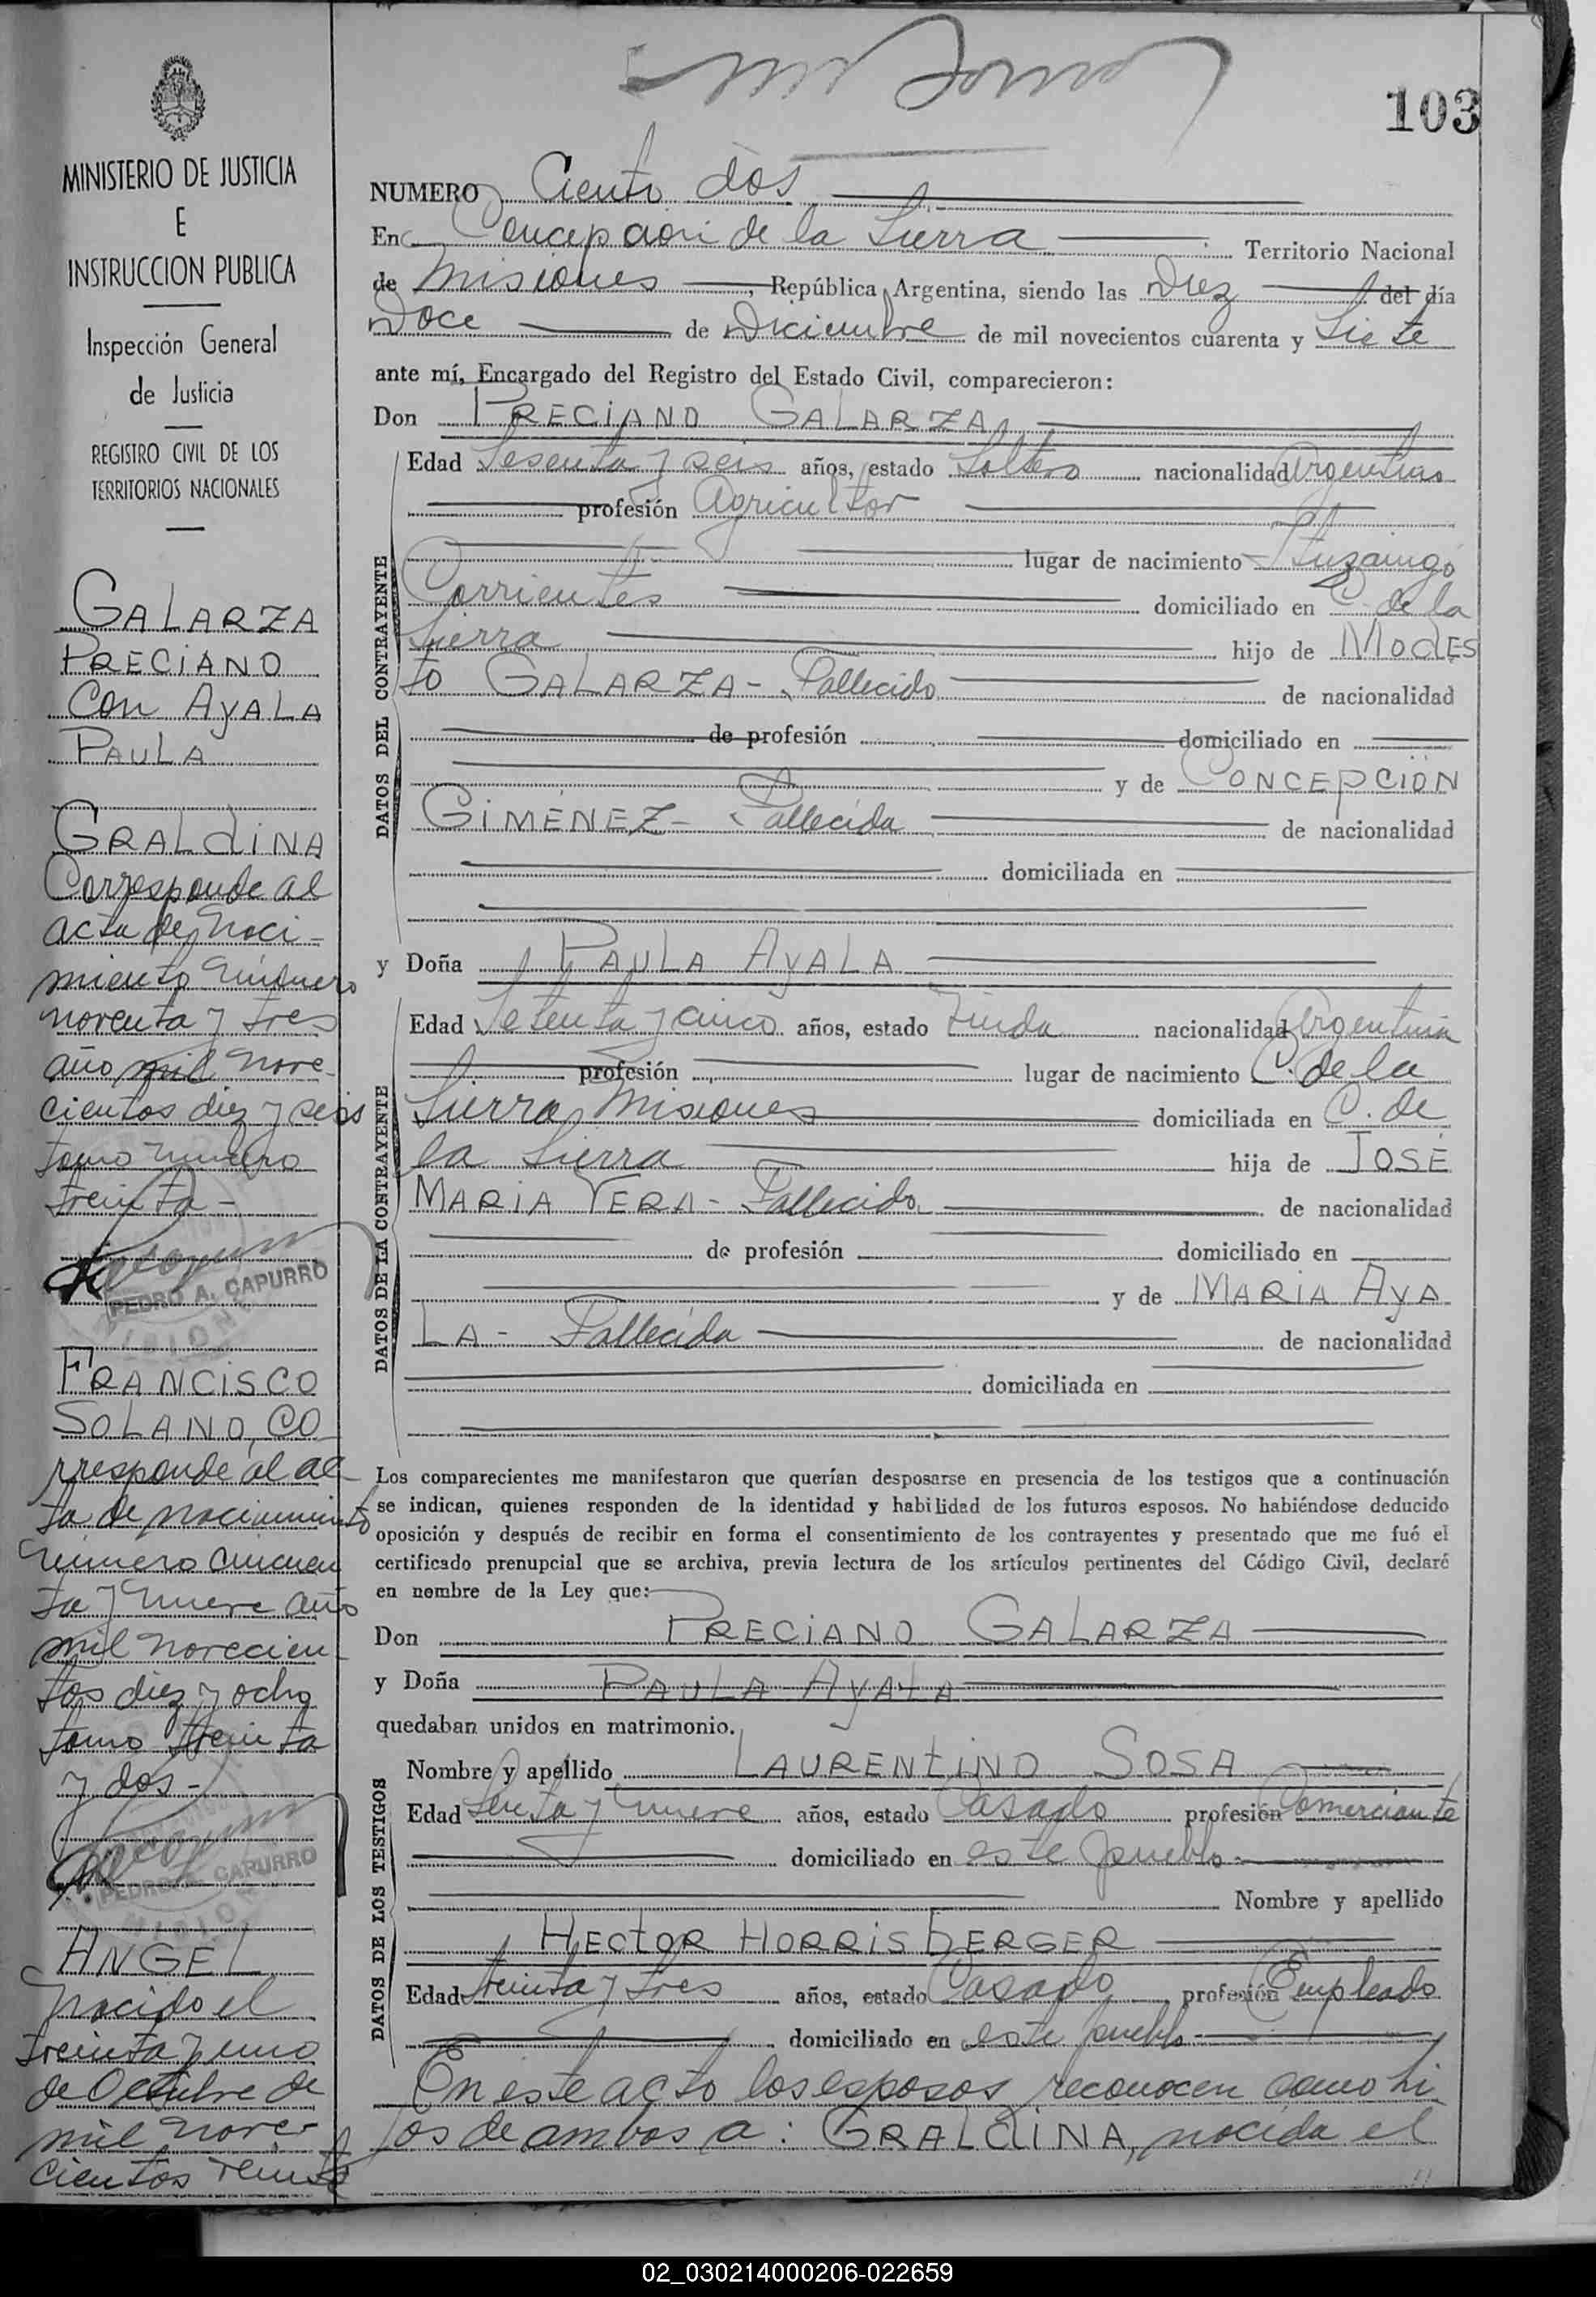 103
MINISTERIO DE JUSTICIA
E
INSTRUCCION PUBLICA
Inspección General
de Justicia
REGISTRO CIVIL DE LOS
TERRITORIOS NACIONALES
GALARZA
PRECIANO
Con AYALA
PAULA
GRALdiNA
Corresponde al
acta de naci-
miento número
noventa y tres
año mil nove-
cientos diez y seis
tomo número
treinta-
PEDRO A. CAPURRO
FRANCISCO
SOLANO, CO
rresponde al ac-
ta de nacimiento
número cincuen
ta y nueve año
mil novecien-
tos diez y ocho
tomo treinta
y dos-
PEDRO A. CAPURRO
ANGEL
nacido el
treinta y uno
de Octubre de
mil nove-
cientos
NUMERO Ciento dos
En Concepción de la Sierra Territorio Nacional
de Misiones, República Argentina, siendo las Diez del día
Doce de Diciembre de mil novecientos cuarenta y Siete
ante mí, Encargado del Registro del Estado Civil, comparecieron:
Don PRECIANO GALARZA
DATOS DEL CONTRAYENTE
Edad Sesenta y seis años, estado Soltero nacionalidad Argentino
profesión Agricultor
lugar de nacimiento Ituzaingó
Corrientes domiciliado en C. de la
Sierra hijo de MODES
to GALARZA- Fallecido de nacionalidad
de profesión domiciliado en
y de CONCEPCIÓN
GIMÉNEZ- Fallecida de nacionalidad
domiciliada en
y Doña PAULA AYALA
DATOS DE LA CONTRAYENTE
Edad Setenta y cinco años, estado Viuda nacionalidad Argentina
profesión lugar de nacimiento C. de la
Sierra, Misiones domiciliada en C. de
la Sierra hija de JOSÉ
MARIA VERA- Fallecido. de nacionalidad
de profesión domiciliado en
y de MARIA AYA
LA- Fallecida de nacionalidad
domiciliada en
Los comparecientes me manifestaron que querían desposarse en presencia de los testigos que a continuación
se indican, quienes responden de la identidad y habilidad de los futuros esposos. No habiéndose deducido
oposición y después de recibir en forma el consentimiento de los contrayentes y presentado que me fué el
certificado prenupcial que se archiva, previa lectura de los artículos pertinentes del Código Civil, declaré
en nombre de la Ley que:
Don PRECIANO GALARZA
y Doña PAULA AYALA
quedaban unidos en matrimonio.
DATOS DE LOS TESTIGOS
Nombre y apellido LAURENTINO SOSA
Edad y nueve años, estado Casado profesión Comerciante
domiciliado en este pueblo-
Nombre y apellido
HECTOR HORRISBERGER
Edad treinta y tres años, estado Casado profesión Empleado
domiciliado en este pueblo-
En este acto los esposos reconocen como hi
jos de ambos a: GRALdiNA, nacida el
02_030214000206-022659